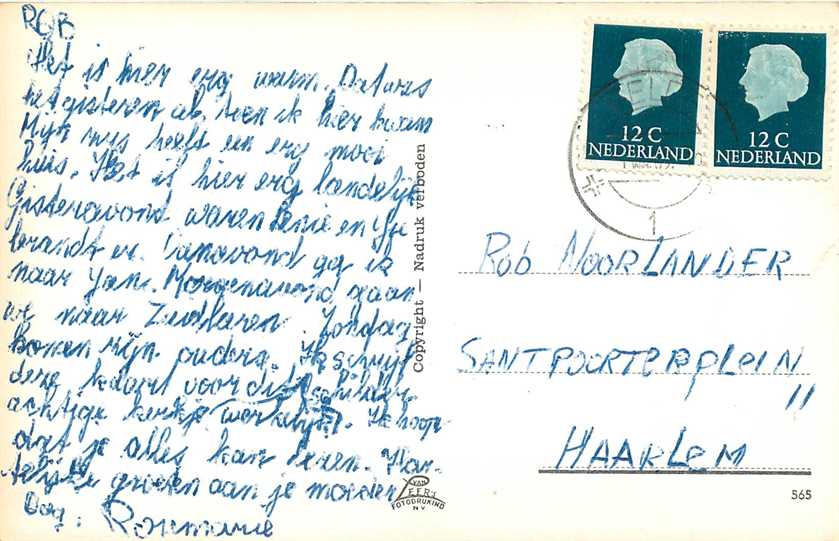 ROB
Het is hier erg warm. Dat was
het gisteren al toen ik hier kwam
Mijn heeft een erg mooi
huis. Het is hier erg landelijk
Gisteravond waren en
er. Vanavond ga ik
naar Jan. Morgenavond gaan
we naar Zuidlaren. Zondag
komen mijn ouders. Ik schrijf
deze kaart voor dit schilder-
achtige kerkje werkelijk. Ik hoop
dat je alles kan lezen. Har-
telijke groeten aan je moeder
Dag. Rosemarie
Copyright — Nadruk verboden
VAN
LEER'S
FOTODRUKIND
N V
12 C
NEDERLAND
12 C
NEDERLAND
1
Rob NOORLANDER
SANTPOORTERPLEIN
11
HAARLEM
565